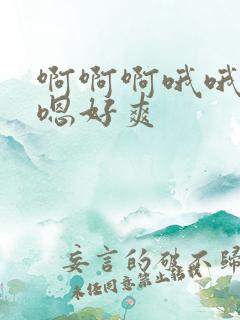 啊啊啊哦哦
嗯好爽
妄言的破不归
未经同意禁止转载